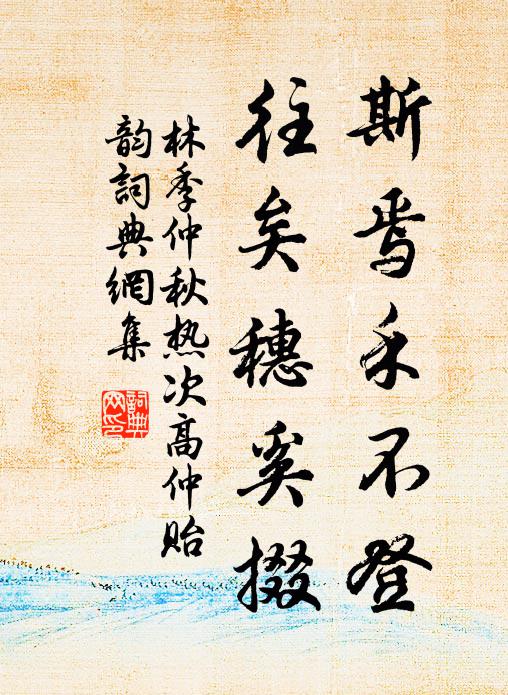 斯焉禾不登
往矣穗奚掇
林季仲秋热次高仲贻
韵詞典網集
詞典網印